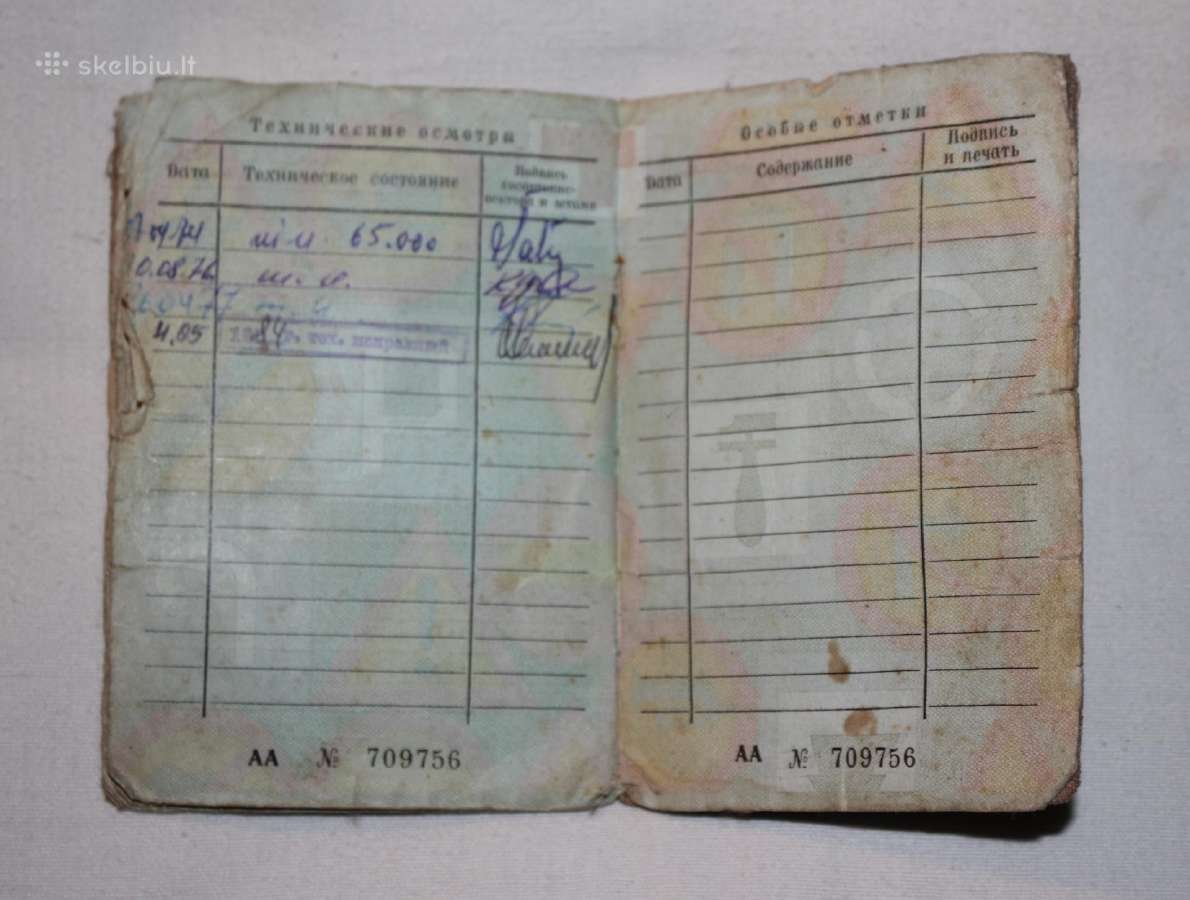 skelbiu.lt
Технические осмотры
Дата Техническое состояние Подпись госавтоинспектора и штамп
65.000
0.08.76 т. и.
4.05 1984г. тех. исправный
АА № 709756
Особые отметки
Дата Содержание Подпись и печать
АА № 709756